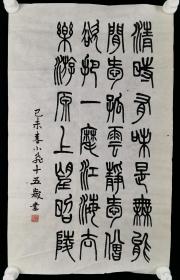 清時有味是無能
閒愛孤雲靜愛僧
欲把一麾江海去
樂游原上望昭陵
己未春小十五歲書